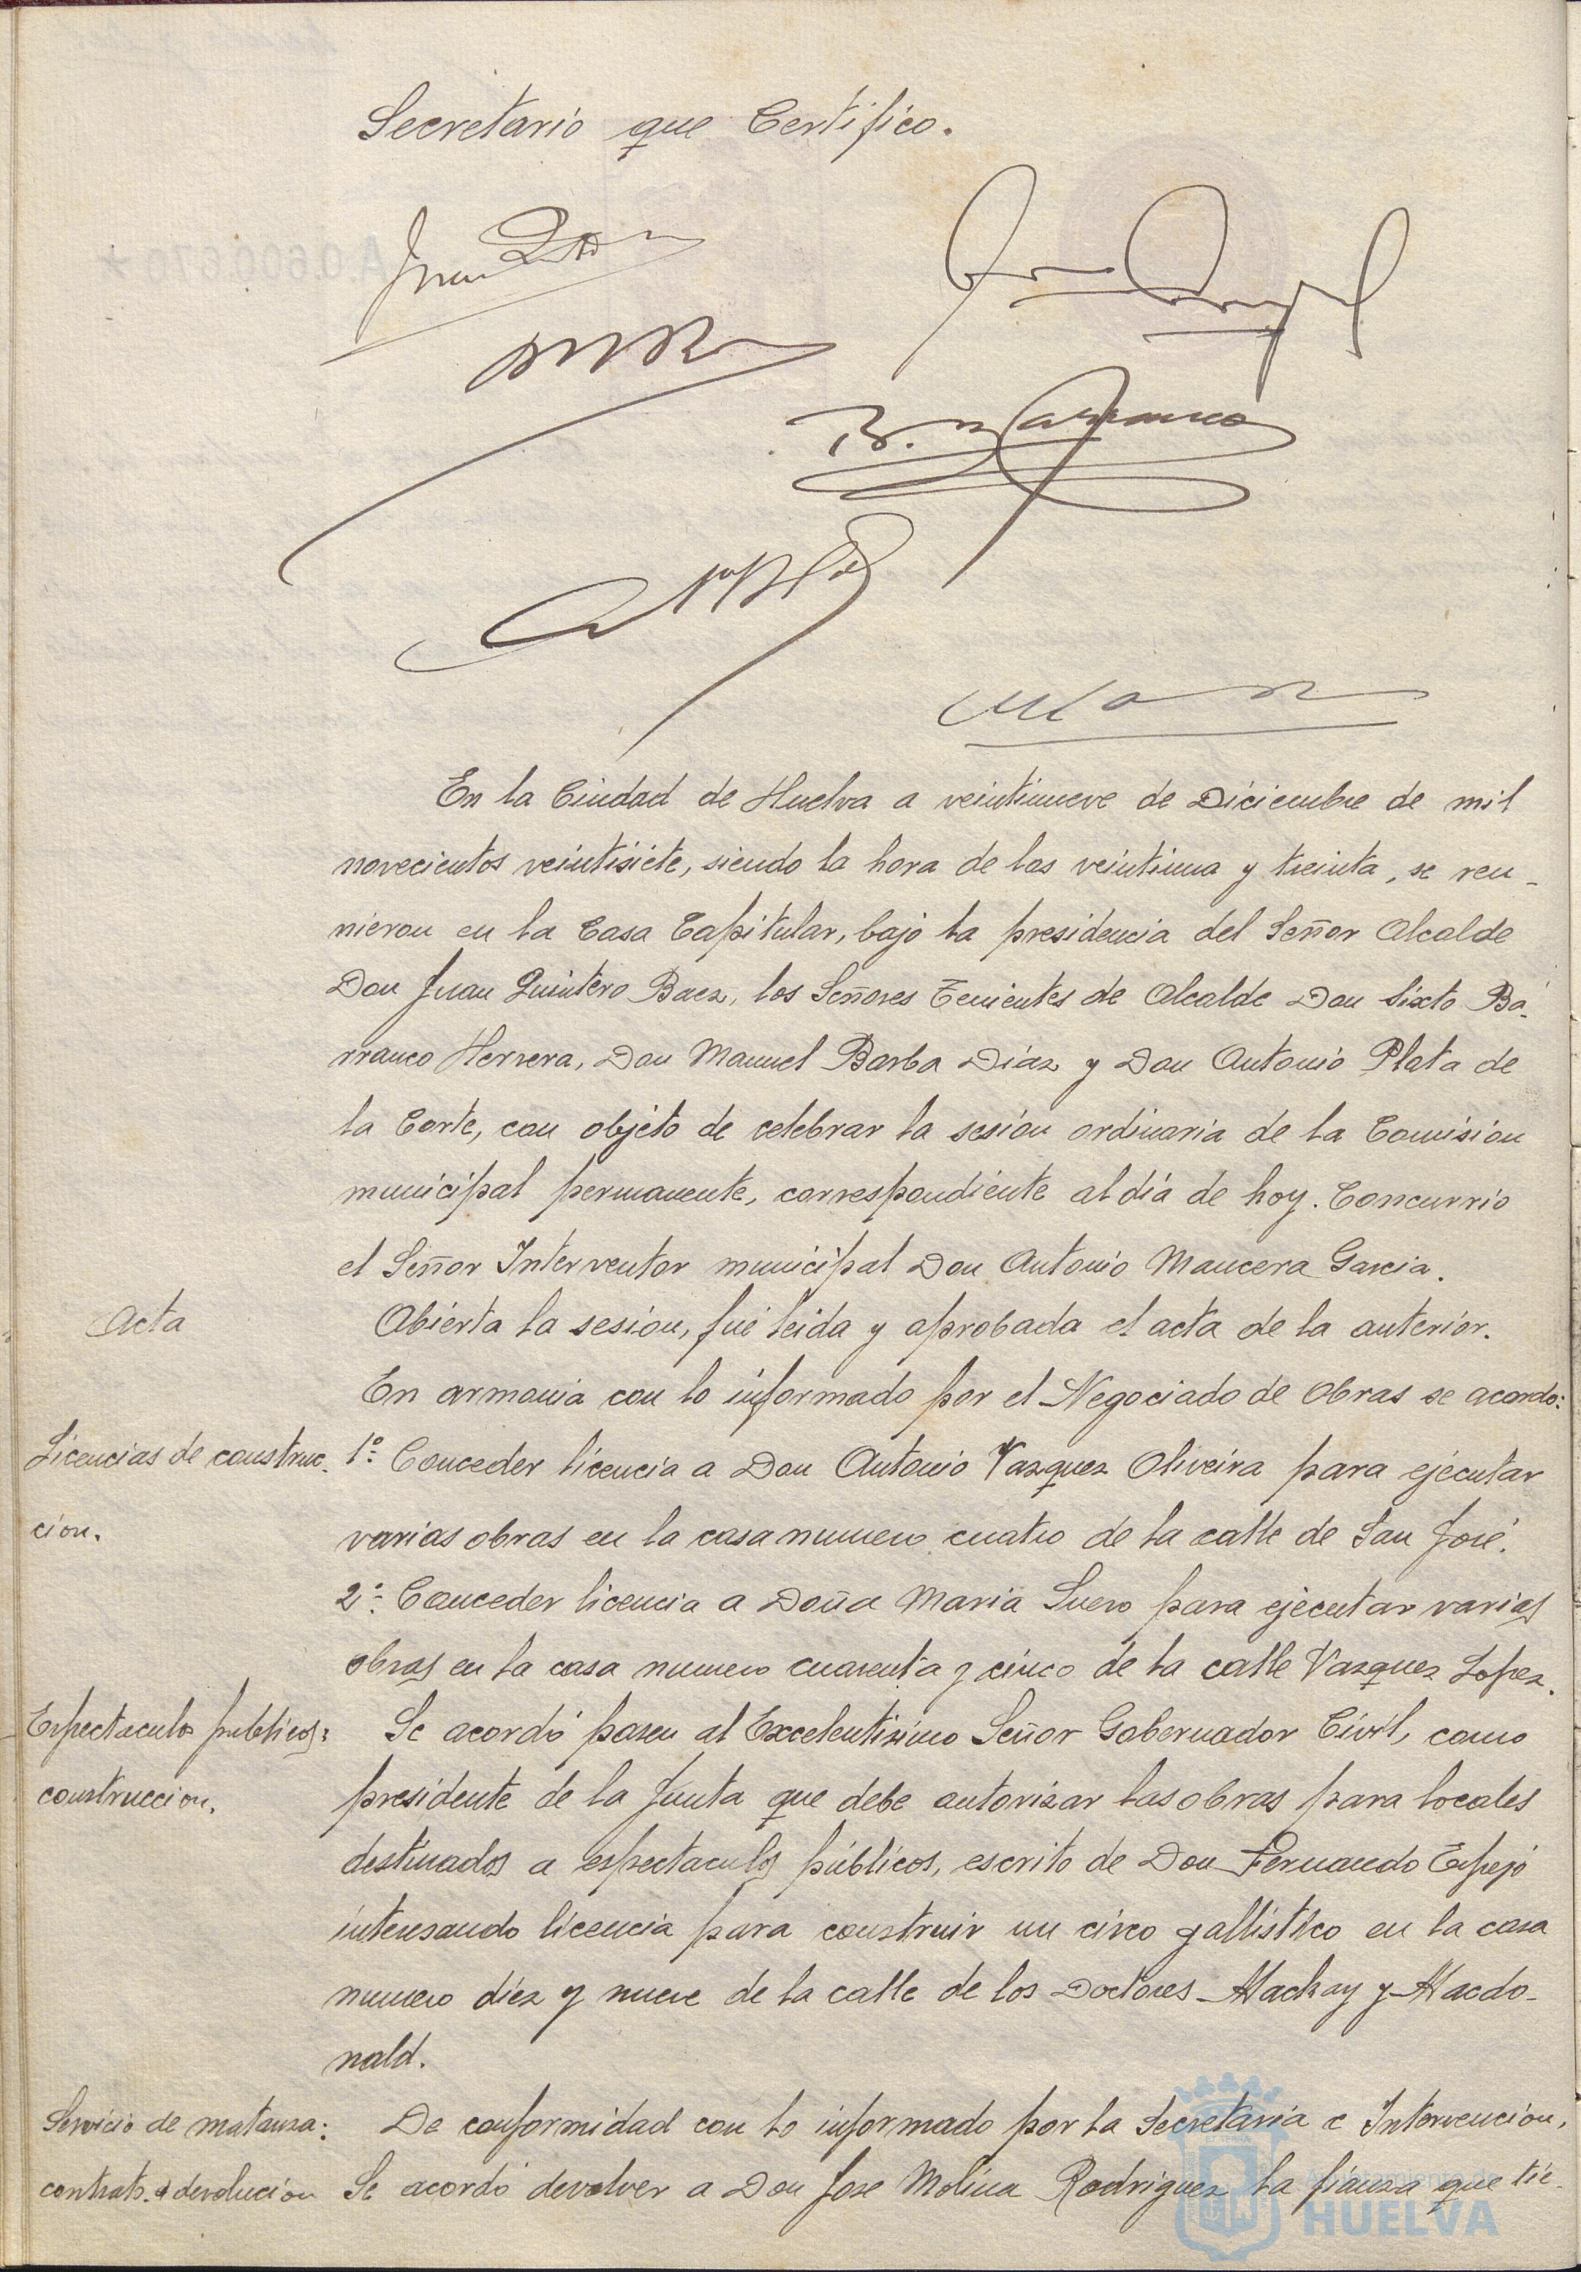 Secretario que Certifico.
B. Barranco
En la Ciudad de Huelva a veintinueve de Diciembre de mil
novecientos veintisiete, siendo la hora de las veintiuna y treinta, se reu-
nieron en la Casa Capitular, bajo la presidencia del Señor Alcalde
Don Juan Quintero Baez, los Señores Tenientes de Alcalde Don Sixto Ba-
rranco Herrera, Don Manuel Barba Diaz y Don Antonio Plata de
la Corte, con objeto de celebrar la sesion ordinaria de la Comision
municipal permanente, correspondiente al dia de hoy. Concurrio
el Señor Interventor municipal Don Antonio Mancera Garcia.
Acta
Abierta la sesion, fué leida y aprobada el acta de la anterior.
En armonia con lo informado por el Negociado de Obras se acordo:
Licencias de construc-
cion.
1º Conceder licencia a Don Antonio Vazquez Oliveira para ejecutar
varias obras en la casa numero cuatro de la calle de San José.
2º Conceder licencia a Doña Maria Suero para ejecutar varias
obras en la casa numero cuarenta y cinco de la calle Vazquez Lopez.
Espectaculos publicos:
construccion.
Se acordó pasen al Excelentisimo Señor Gobernador Civil, como
presidente de la Junta que debe autorizar las obras para locales
destinados a espectaculos públicos, escrito de Don Fernando Espejo
interesando licencia para construir un circo gallistico en la casa
numero diez y nueve de la calle de los Doctores Mackay y Macdo-
nald.
Servicio de matanza:
contrato. devolucion
De conformidad con lo informado por la Secretaria e Intervencion,
Se acordó devolver a Don Jose Molina Rodriguez la fianza que tie-
Ayuntamiento de
HUELVA